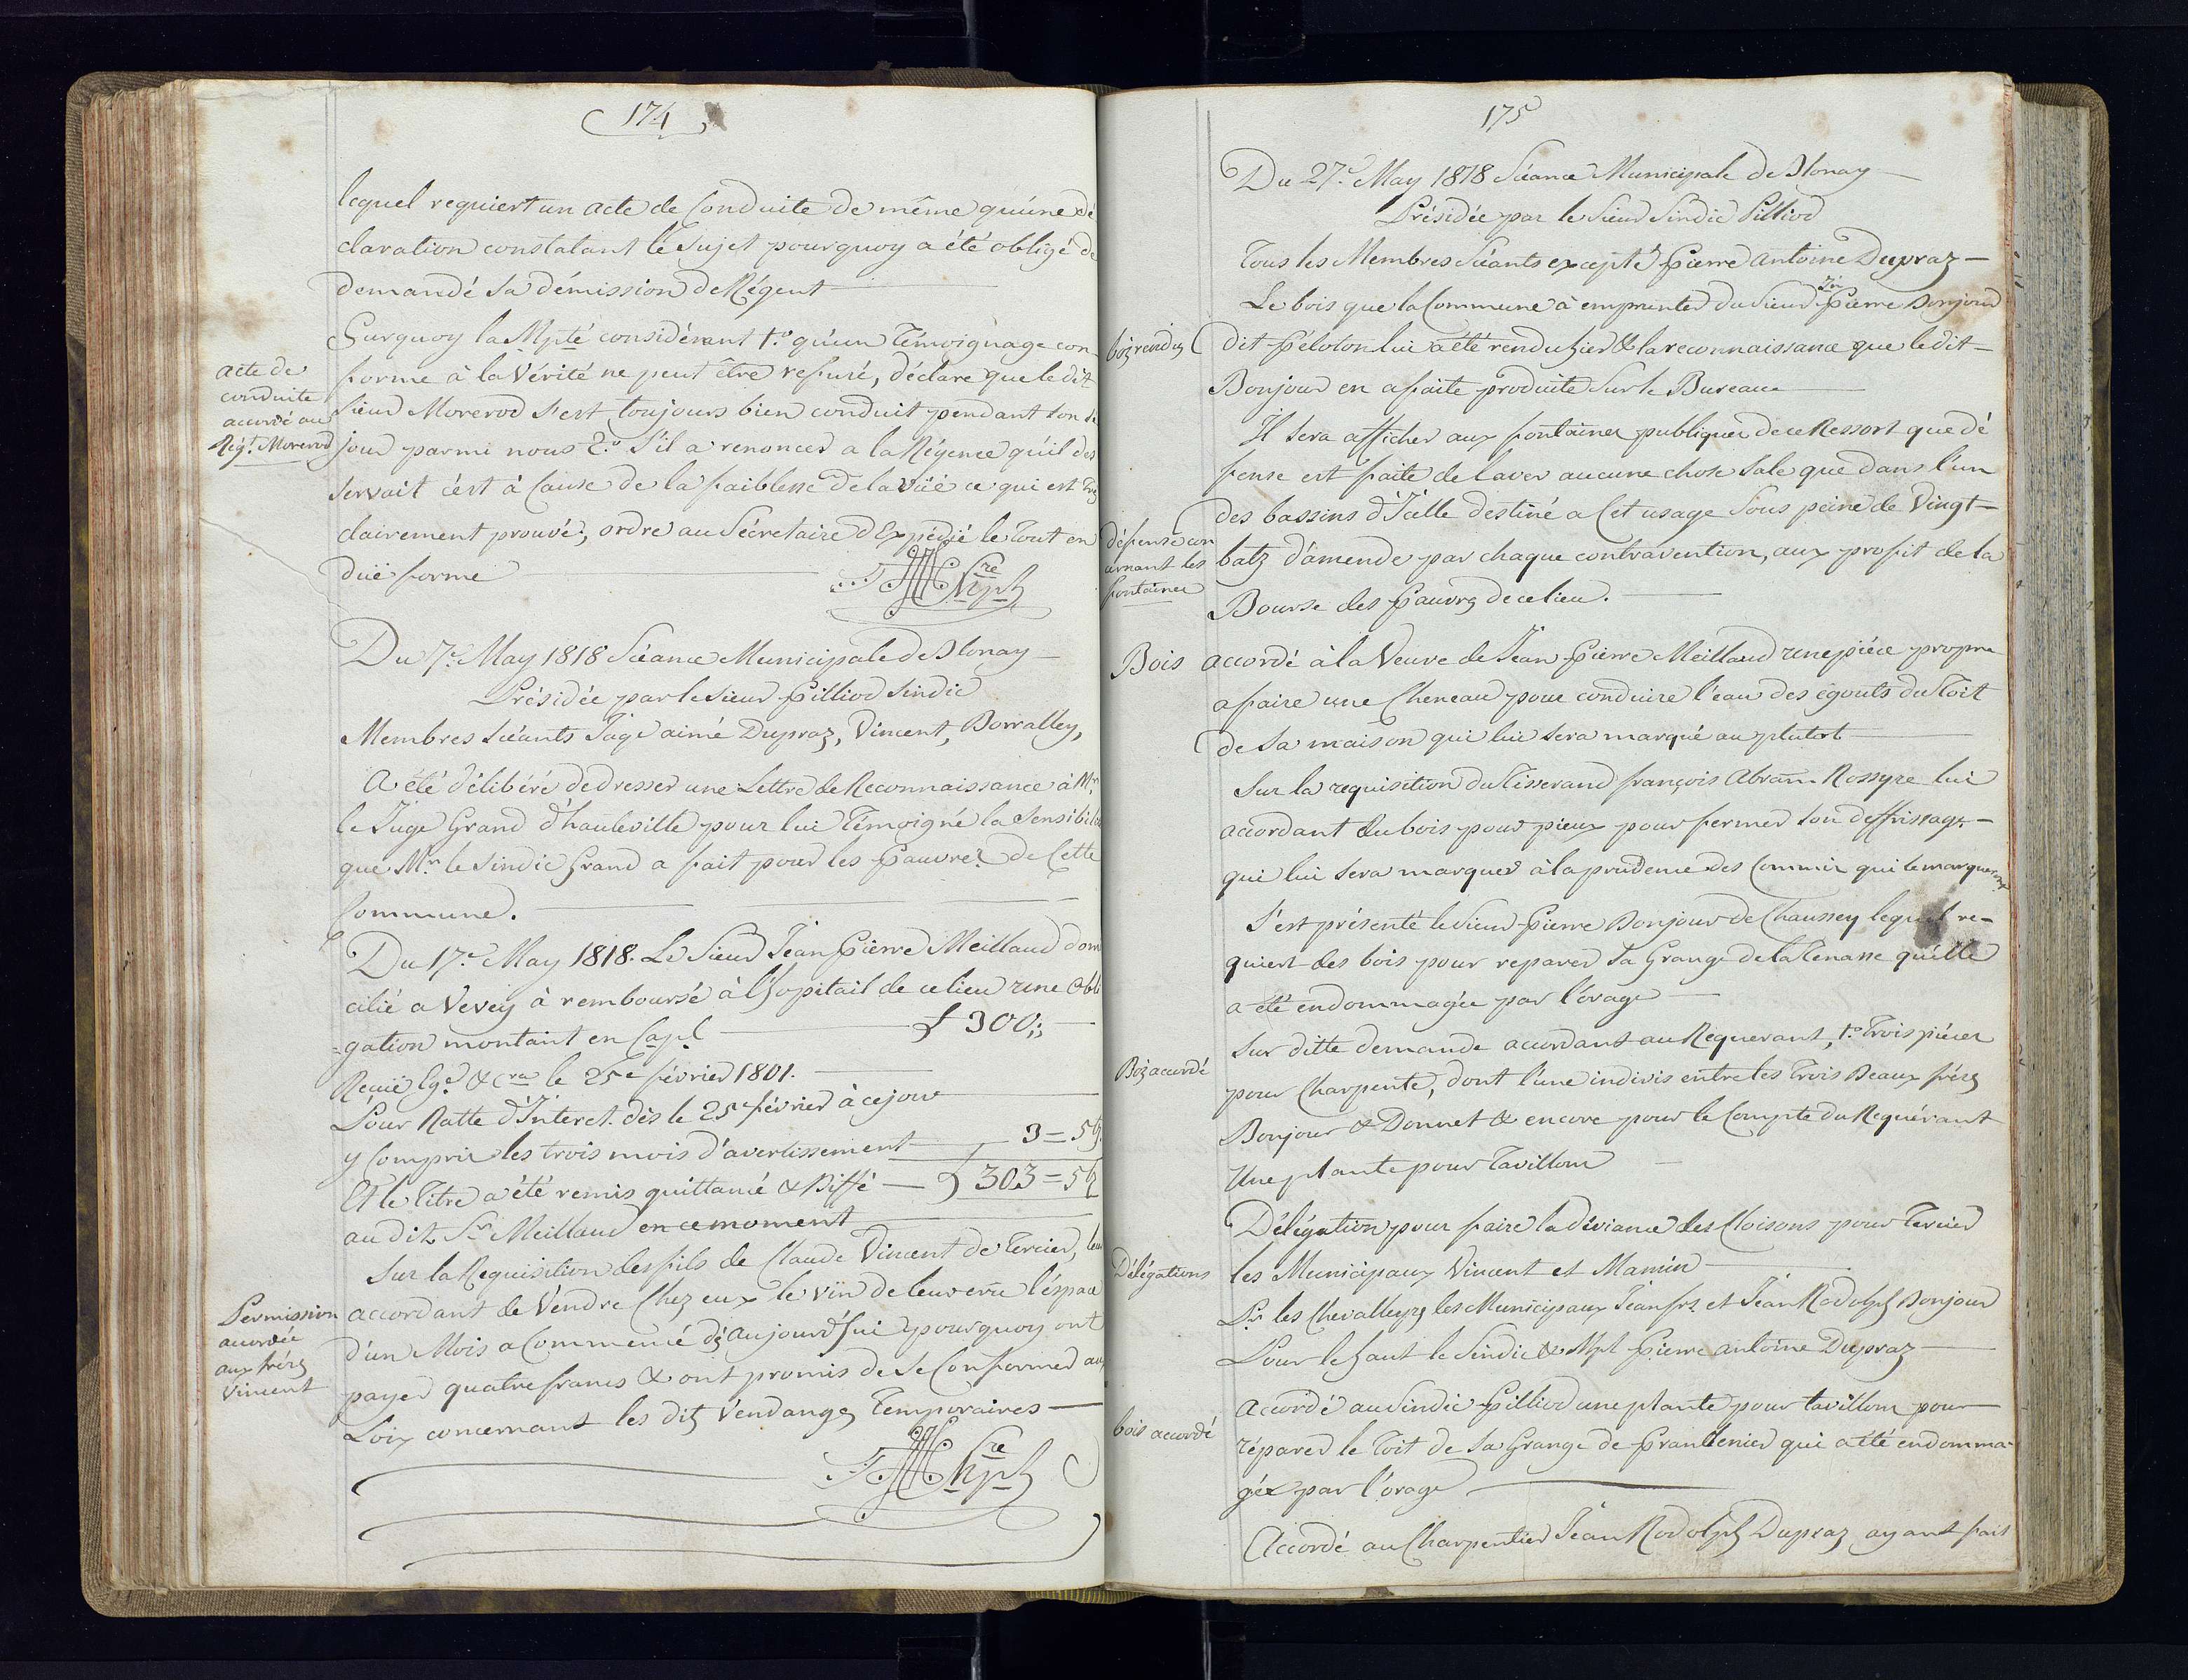 174
lequel requiert un acte de Conduite de même qu'une dé
claration constatant le Sujet pourquoy a été obligé de
demandé sa démission de Régent
Surquoy la Mpté considérant 1.º qu'un Témoignage con-
acte de
conduite
accordé au
Rég.t Morerod
forme à la Vérité ne peut être refusé, déclare que le dit
sieur Morerod s'est toujours bien conduit pendant son sé
jour parmi nous 2.º S'il a renoncer a la Régence qu'il des
servait c'est à Cause de la faiblesse de la vüé ce qui est
clairement prouvé; ordre au Sécretaire d'Expédié le Tout en
düe forme
Du 7.e May 1818 Séance Municipale de Blonay
Présidée par le Sieur Pilliod Sindic
Membres Séants Juge aimé Dupraz, Vincent, Borralley,
A été délibéré de dresser une Lettre de Reconnaissance à Mr.
le Juge Grand d'hauteville pour lui Témoigné la Sensibilité
que Mr. le Sindic Grand a fait pour les Pauvres de Cette
Commune.
Du 17.e May 1818. Le Sieur Jean Pierre Meillaud domi
cilié a Vevey à remboursé à l'hopitail de ce lieu une obli
gation montant en Capl £ 300;;
Reçüe le 25e février 1801.
Pour Ratte d'Interet dès le 25e février à ce jour
y Compris les trois mois d'avertissement 3 = 5
Et le Titre a été remis quittancé & Biffé £ 303 = 5
au dit Sr. Meillaud en ce moment
Sur la Requisition des fils de Claude Vincent de Tercier, leur
Permission
accordée
aux frères
Vincent
accordant de Vendre Chez eux le vin de leur crû l'éspace
d'un Mois a Commencé dès aujourd'hui pourquoy ont
payer quatre francs & ont promis de se Conformer aux
Loix concernant les dits Vendanges Temporaires
175
Du 27.e May 1818 Séance Municipale de Blonay
Présidée par le Sieur Sindic Pilliod
Tous les Membres Séants excepté Pierre Antoine Dupraz
Le bois que la Commune à emprunter du Sieur Jn Pierre Bonjour
boiz rendu
dit Péloton lui a été rendu hier & la reconnaissance que le dit
Bonjour en a faite produite Sur le Bureau
Il sera afficher aux fontaines publiques de ce Ressort que dé
fense est faite de laver aucune chose Sale que dans l'un
des bassins d'Icelle destiné a Cet usage Sous peine de Vingt
défense con
cernant les
fontaines
batz d'amende par chaque contravention, aux profit de la
Bourse des Pauvres de ce lieu.
Bois
accordé à la Veuve de Jean Pierre Meillaud une pièce propre
a faire une Cheneau pour conduire l'eau des égouts du Toit
de Sa maison qui lui sera marqué au plutot
Sur la requisition du Tisserand françois Abram Rossyre lui
accordant du bois pour pieux pour fermer son deffrissage
qui lui sera marquer à la prudence des Commis qui le marqueront
S'est présenté le Sieur Pierre Bonjour de Chaussey lequel re-
quiert des bois pour reparer sa Grange de la Tenasse qu'elle
a été endommagée par l'orage
Sur ditte demande accordant au Requerant, 1.º Trois pièces
Boiz accordé
pour Charpente, dont l'une indivis entre les Trois Beaux frères
Bonjour & Donnet & encore pour le Compte du Requérant
Une plante pour Tavillons
Délégation pour faire la déviance des Cloisons pour Tercier
Délégations
les Municipaux Vincent et Mamin
Pr. les Chevalleyres les Municipaux Jean frs. et Jean Rodolph Bonjour
Pour le haut le Sindic & Mpl Pierre antoine Dupraz
Accordé au Sindic Pilliod une plante pour tavillons pour
bois accordé
réparer le Toit de Sa Grange de Prantenier qui a été endomma-
gée par l'orage
Accordé au Charpentier Jean Rodolph Dupraz ayant fait